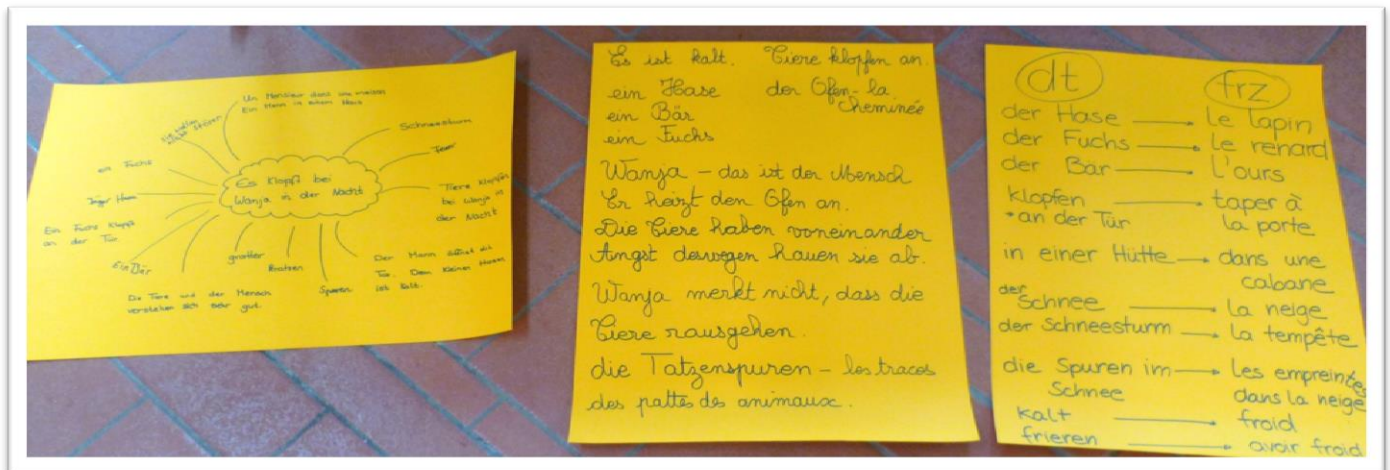 Un Monsieur dans une maison
Ein Mann in einem Haus
Schneesturm
Tiere klopfen
bei Wanja in
der Nacht
Der Mann öffnet die
Tür. Dem kleinen Hasen
ist kalt.
Spuren
kratzen
Die Tiere und der Mensch
verstehen sich sehr gut.
Ein Bär
Ein Fuchs klopft
an der Tür
ein Fuchs
Es klopft bei
Wanja in der Nacht
Es ist kalt. Tiere klopfen an.
ein Hase der Ofen - la
cheminée
ein Bär
ein Fuchs
Wanja - das ist der Mensch
Er heizt den Ofen an.
Die Tiere haben voneinander
Angst deswegen hauen sie ab.
Wanja merkt nicht, dass die
Tiere rausgehen.
die Tatzenspuren - les traces
des pattes des animaux.
dt frz
der Hase → le lapin
der Fuchs → le renard
der Bär → l'ours
klopfen → taper à
an der Tür la porte
in einer Hütte → dans une
cabane
der
Schnee → la neige
der Schneesturm → la tempête
die Spuren im → les empreintes
Schnee dans la neige
kalt → froid
frieren → avoir froid